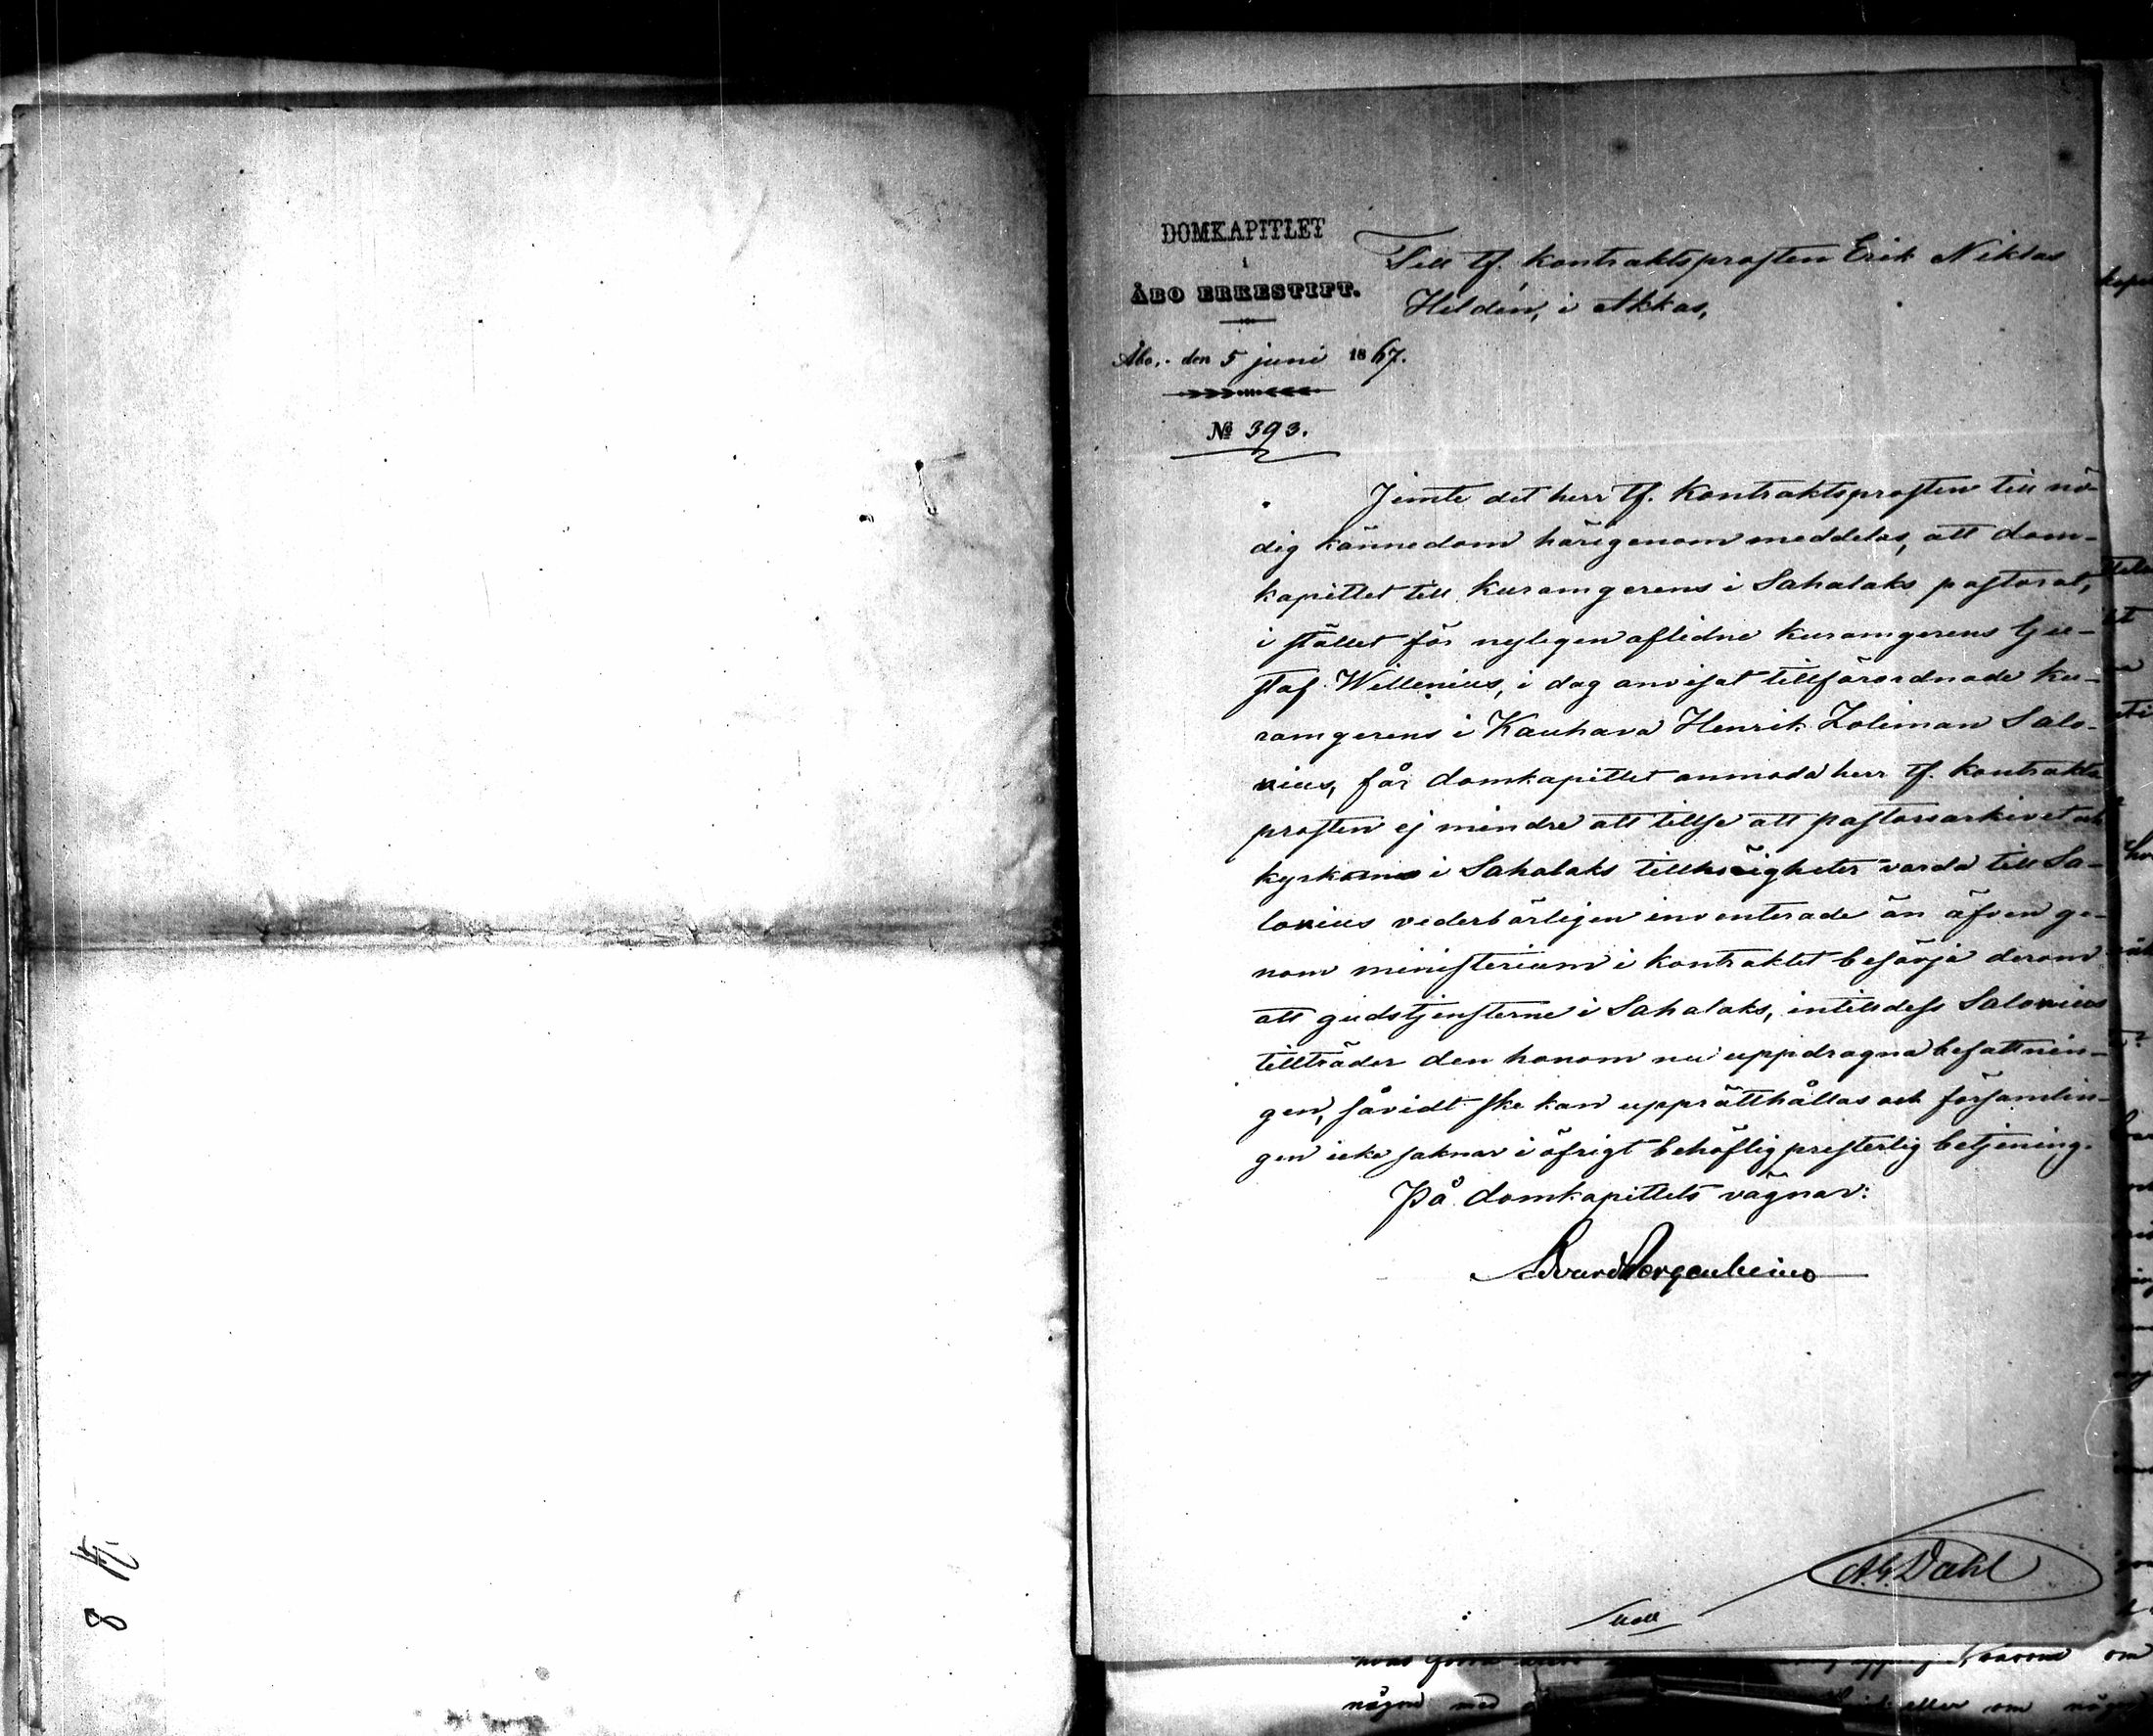 DOMKAPITLET
i
ÅBO ERKESTIFT.
Åbo, den 5 juni 1867.
№ 393.
Till tf. kontraktsprosten Erik Niklas
Heldén, i Akkas,
Jemte det herr tf. kontraktsprosten till nö-
dig kännedom härigenom meddelas, att dom-
kapitlet till kuramgerens i Sahalaks pastorat,
i stället för nyligen aflidne kuramgerens Gu-
staf Willenius, i dag anvisat tillförordnade ku-
ramgerens i Kauhava Henrik Zoliman Salo-
nius, får domkapitlet anmoda herr tf. kontrakts
prosten ej mindre att tillse att pastorsarkivet och
kyrkans i Sahalaks tillhörigheter varda till Sa-
lonius vederbörligen inventerade än äfven ge-
nom ministerium i kontraktet besörja derom
att gudstjensterne i Sahalaks, intilldess Salonius
tillträder den honom nu uppdragna befattnin-
gen, såvidt ske kan upprätthållas och församlin-
gen icke saknar i öfrigt behöflig presterlig betjening.
På domkapitlets vägnar:
Edvard Bergenheim
A.G. Dahl
8